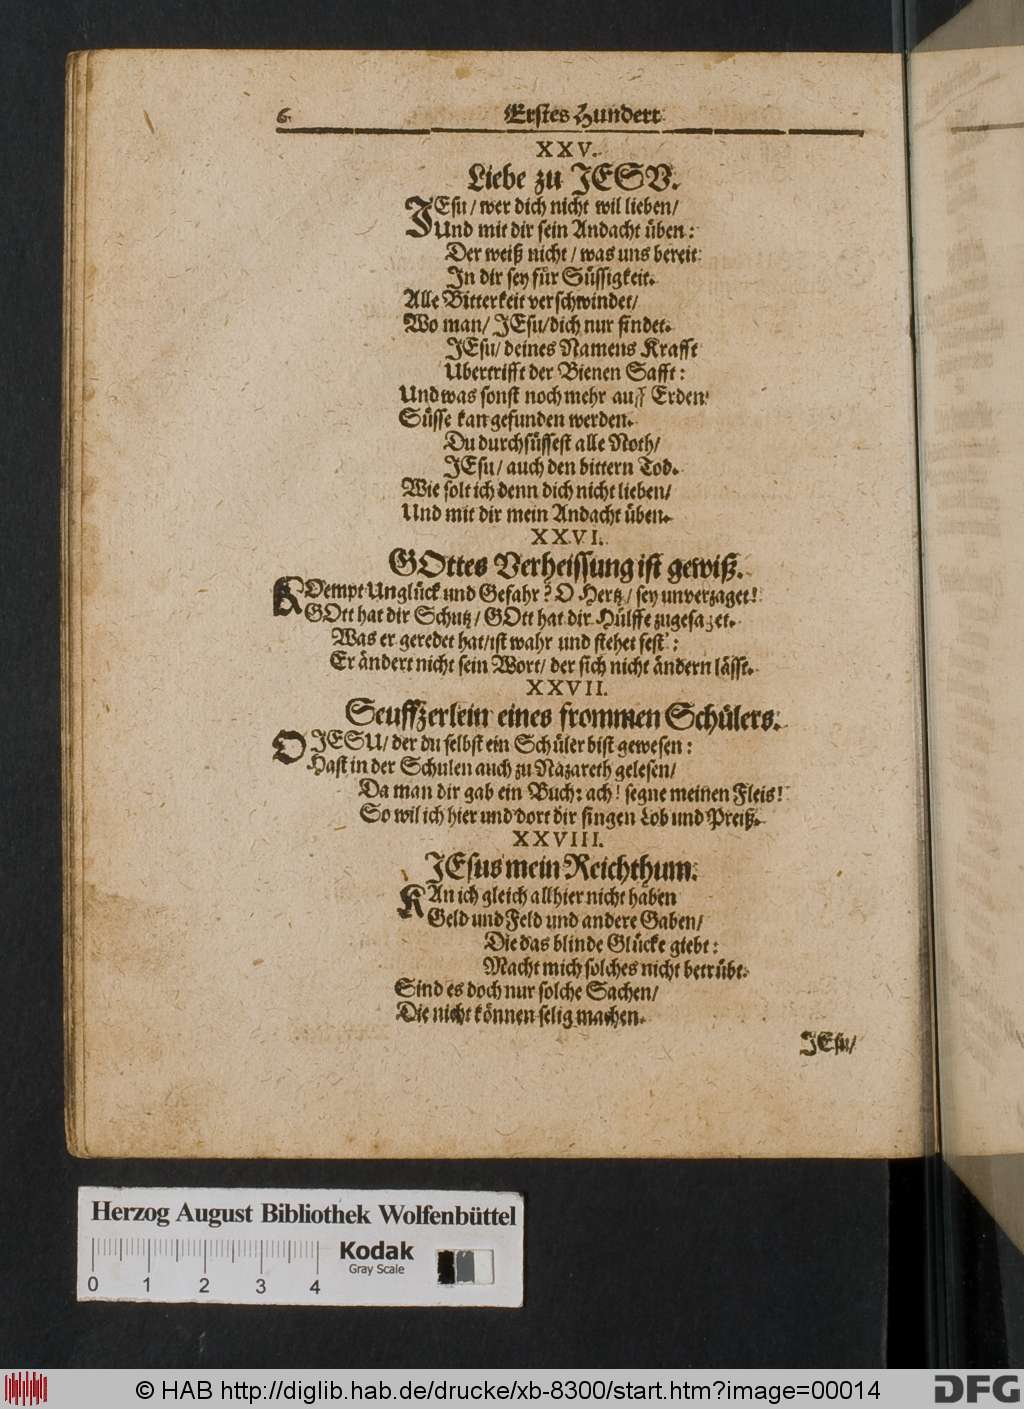 6 Erstes Hundert
XXV.
Liebe zu JESV.
JEsu / wer dich nicht wil lieben /
Und mit dir sein Andacht üben:
Der weiß nicht / was uns bereit
In dir sey für Süssigkeit.
Alle Bitterkeit verschwindet /
Wo man / JEsu / dich nur findet.
JEsu / deines Namens Krafft
Ubertrifft der Bienen Safft:
Und was sonst noch mehr auff Erden
Süsse kan gefunden werden.
Du durchsüssest alle Noth /
JEsu / auch den bittern Tod.
Wie solt ich denn dich nicht lieben /
Und mit dir mein Andacht üben.
XXVI.
GOttes Verheissung ist gewiß.
KOempt Unglück und Gefahr? O Hertz / sey unverzaget!
GOtt hat dir Schutz / GOtt hat dir Hülffe zugesaget.
Was er geredet hat / ist wahr und stehet fest:
Er ändert nicht sein Wort / der sich nicht ändern lässt.
XXVII.
Seuffzerlein eines frommen Schülers.
O JESU / der du selbst ein Schüler bist gewesen:
Hast in der Schulen auch zu Nazareth gelesen /
Da man dir gab ein Buch: ach! segne meinen Fleis!
So wil ich hier und dort dir singen Lob und Preiß.
XXVIII.
JEsus mein Reichthum.
KAn ich gleich allhier nicht haben
Geld und Feld und andere Gaben /
Die das blinde Glücke giebt:
Macht mich solches nicht betrübt.
Sind es doch nur solche Sachen /
Die nicht können selig machen.
JEsu /
Herzog August Bibliothek Wolfenbüttel
Kodak
Gray Scale
0 1 2 3 4
© HAB http://diglib.hab.de/drucke/xb-8300/start.htm?image=00014
DFG